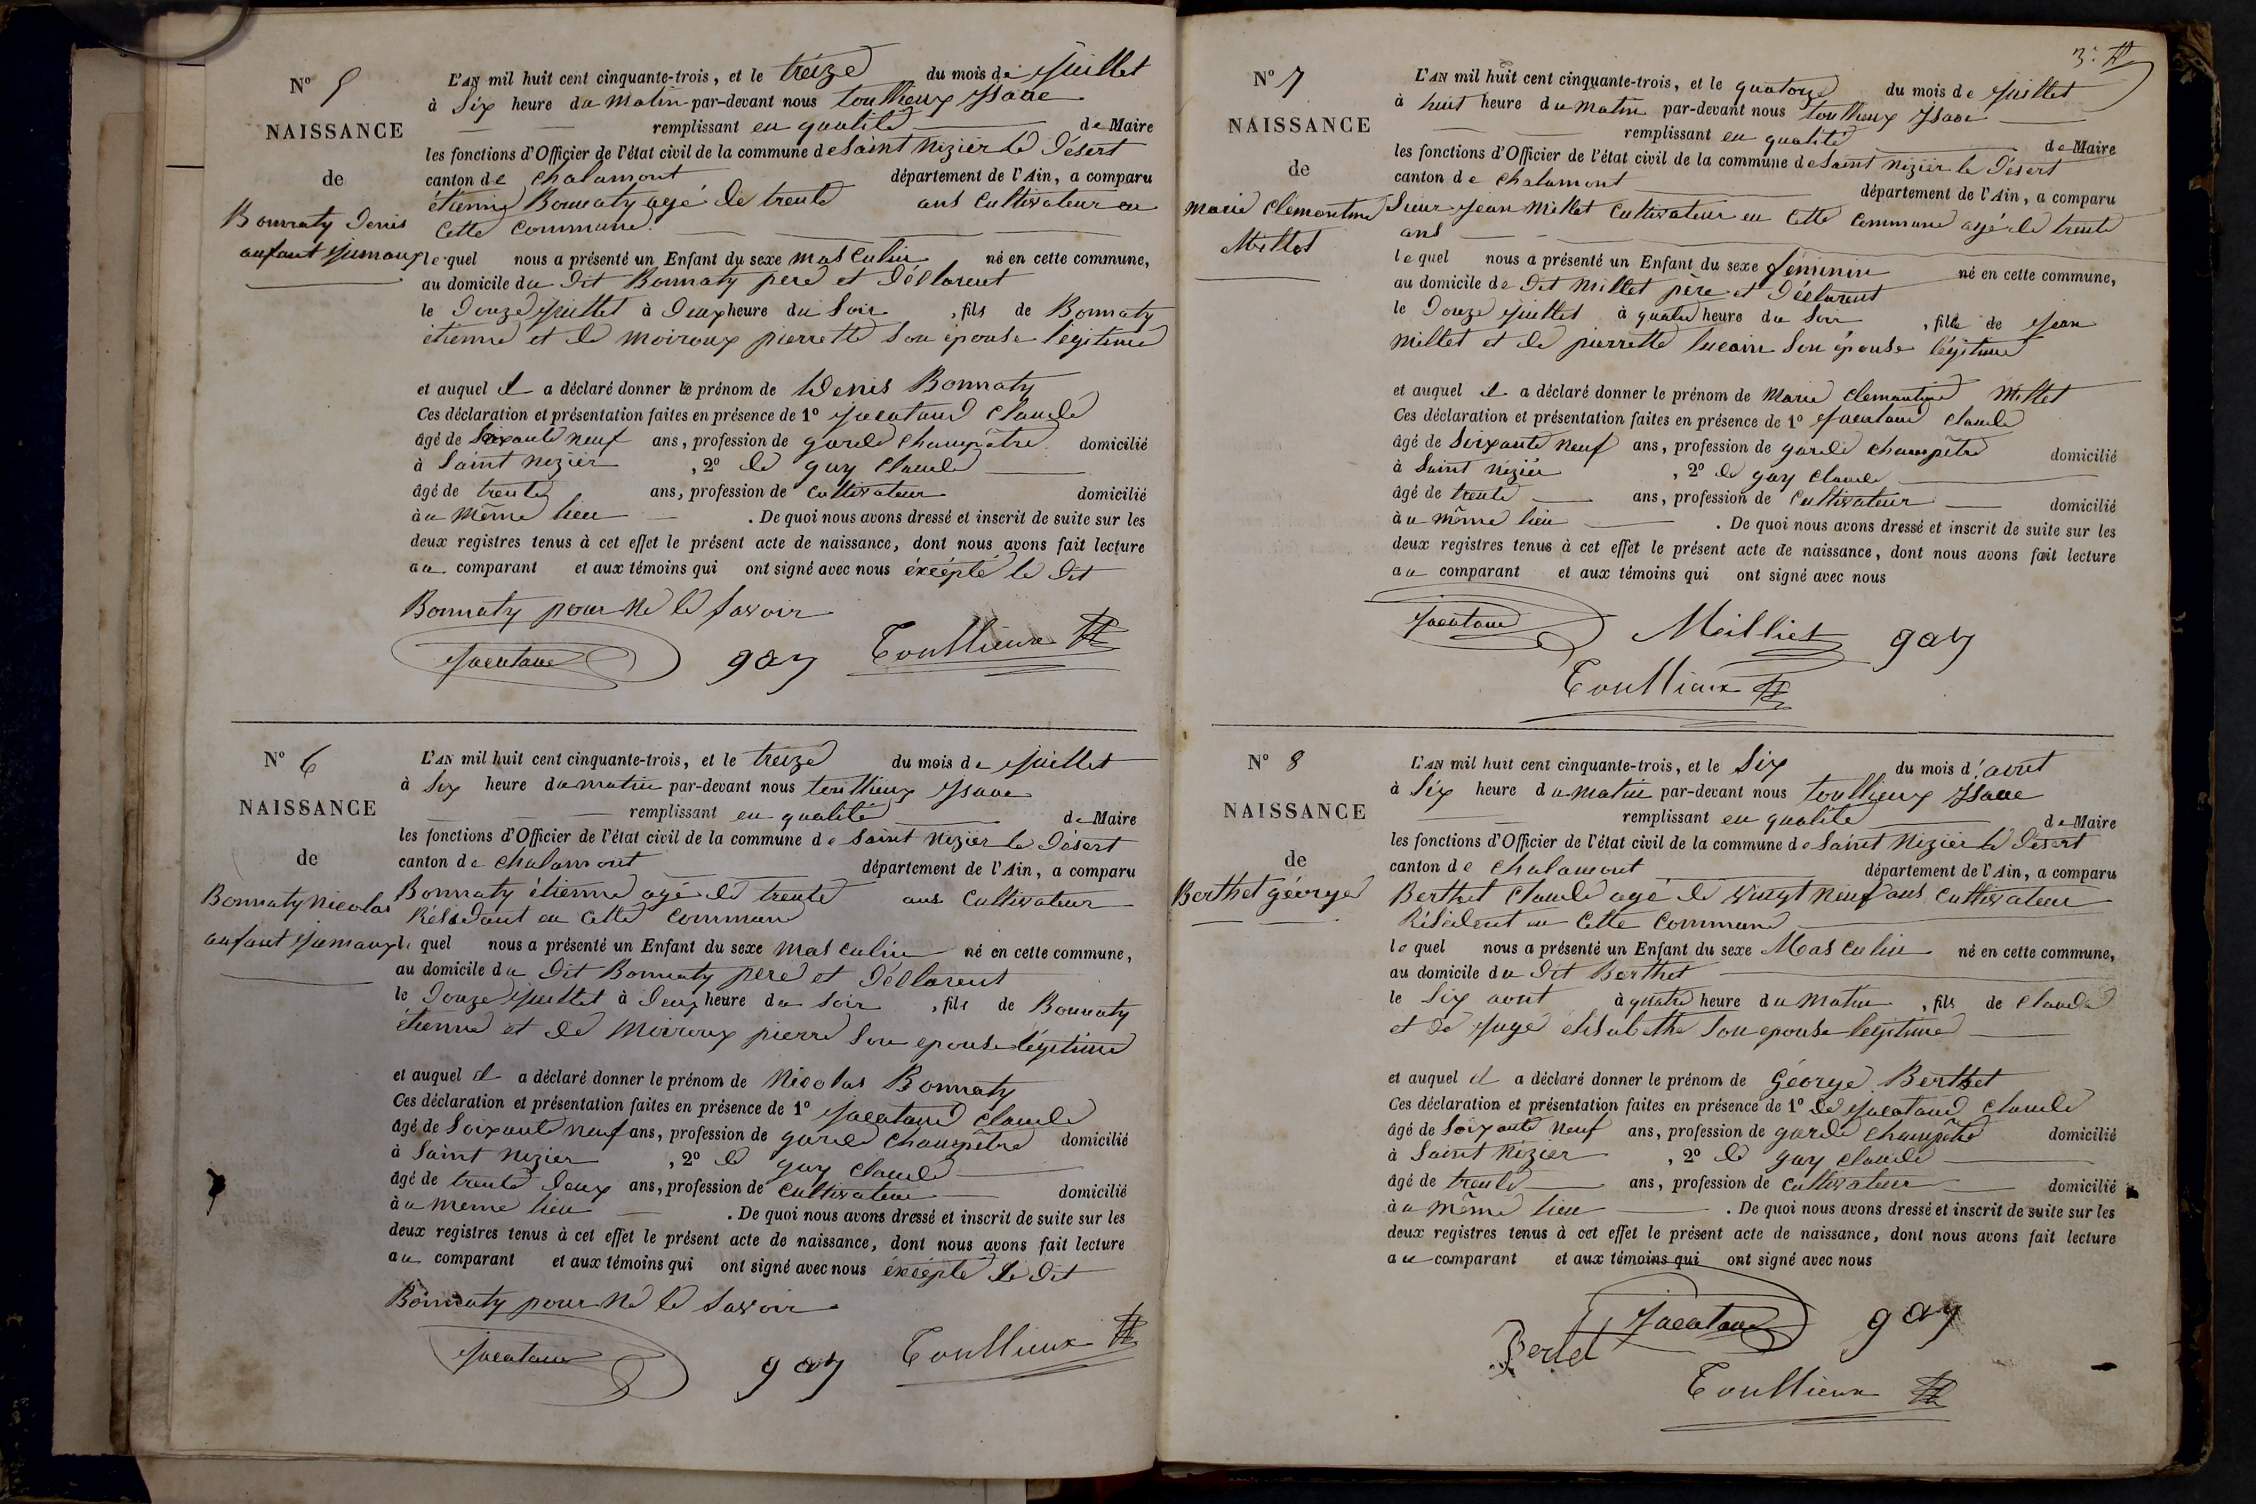 N° 5
NAISSANCE
de
Bonnaty Denis
enfant jumaux
L'AN mil huit cent cinquante-trois, et le treize du mois de Juillet
à Six heure du Matin par-devant nous toullieux Isaac
remplissant en qualité de Maire
les fonctions d'Officier de l'état civil de la commune de Saint Nizier le Désert
canton de Chalamont département de l'Ain, a comparu
étienne Bonnaty agé de trente ans Cultivateur en
Cette Commune.
lequel nous a présenté un Enfant du sexe masculin né en cette commune,
au domicile du dit Bonnaty pere et déclarent
le Douze Juillet à Deux heure du Soir, fils de Bonnaty
étienne et de moiroux pierrette son épouse légitime
et auquel il a déclaré donner le prénom de Denis Bonnaty
Ces déclaration et présentation faites en présence de 1° Jacatand Claude
âgé de Soixante neuf ans, profession de garde champêtre domicilié
à Saint Nizier, 2° de gay Claude
âgé de trente ans, profession de Cultivateur domicilié
au même lieu. De quoi nous avons dressé et inscrit de suite sur les
deux registres tenus à cet effet le présent acte de naissance, dont nous avons fait lecture
au comparant et aux témoins qui ont signé avec nous éxcépté le dit
Bonnaty pour ne le Savoir
gay Toullieux
N° 6
NAISSANCE
de
Bonnaty Nicolas
enfant jumaux
L'AN mil huit cent cinquante-trois, et le treize du mois de Juillet
à Six heure du matin par-devant nous toullieux Isaac
remplissant en qualité de Maire
les fonctions d'Officier de l'état civil de la commune de Saint Nizier le Désert
canton de Chalamont département de l'Ain, a comparu
Bonnaty étienne agé de trente ans Cultivateur
Résidant en Cette Commune
lequel nous a présenté un Enfant du sexe masculin né en cette commune,
au domicile du dit Bonnaty pere et déclarent
le Douze Juillet à Deux heure du Soir, fils de Bonnaty
étienne et de Moiroux pierre son epouse légitime
et auquel il a déclaré donner le prénom de Nicolas Bonnaty
Ces déclaration et présentation faites en présence de 1° Jacatand Claude
âgé de Soixante neuf ans, profession de garde champêtre domicilié
à Saint Nizier, 2° de gay Claude
âgé de trente Deux ans, profession de Cultivateur domicilié
au meme lieu. De quoi nous avons dressé et inscrit de suite sur les
deux registres tenus à cet effet le présent acte de naissance, dont nous avons fait lecture
au comparant et aux témoins qui ont signé avec nous éxcépté le dit
Bonnaty pour ne le Savoir
gay Toullieux
3.
N° 7
NAISSANCE
de
Marie Clémentine
Millet
L'AN mil huit cent cinquante-trois, et le quatorze du mois de Juillet
à huit heure du matin par-devant nous toullieux Isaac
remplissant en qualité de Maire
les fonctions d'Officier de l'état civil de la commune de Saint Nizier le Désert
canton de Chalamont département de l'Ain, a comparu
Sieur Jean Millet Cultivateur en Cette Commune agé de trente
ans
lequel nous a présenté un Enfant du sexe féminin né en cette commune,
au domicile de dit Millet père et déclarent
le Douze Juillet à quatre heure du Soir, fille de Jean
Millet et de pierrette lucain son épouse légitime
et auquel il a déclaré donner le prénom de Marie Clemantine Millet
Ces déclaration et présentation faites en présence de 1° Jacatand Claude
âgé de Soixante neuf ans, profession de garde champêtre domicilié
à Saint Nizier, 2° de gay Claude
âgé de trente ans, profession de Cultivateur domicilié
au même lieu. De quoi nous avons dressé et inscrit de suite sur les
deux registres tenus à cet effet le présent acte de naissance, dont nous avons fait lecture
au comparant et aux témoins qui ont signé avec nous
Meilliet gay
Toullieux
N° 8
NAISSANCE
de
Berthet géorge
L'AN mil huit cent cinquante-trois, et le Six du mois d'aout
à Six heure du matin par-devant nous toullieux Isaac
remplissant en qualité de Maire
les fonctions d'Officier de l'état civil de la commune de Saint Nizier le Désert
canton de Chalamont département de l'Ain, a comparu
Berthet Claude agé de vingt neuf ans Cultivateur
Résident en Cette Commune
lequel nous a présenté un Enfant du sexe Masculin né en cette commune,
au domicile du dit Berthet
le Six aout à quatre heure du Matin, fils de Claude
et de Juge elisabethe son epouse légitime
et auquel il a déclaré donner le prénom de Géorge Berthet
Ces déclaration et présentation faites en présence de 1° de Jacatand Claude
âgé de Soixante neuf ans, profession de garde champêtre domicilié
à Saint Nizier, 2° de gay Claude
âgé de trente ans, profession de Cultivateur domicilié
au même lieu. De quoi nous avons dressé et inscrit de suite sur les
deux registres tenus à cet effet le présent acte de naissance, dont nous avons fait lecture
au comparant et aux témoins qui ont signé avec nous
gay
Toullieux